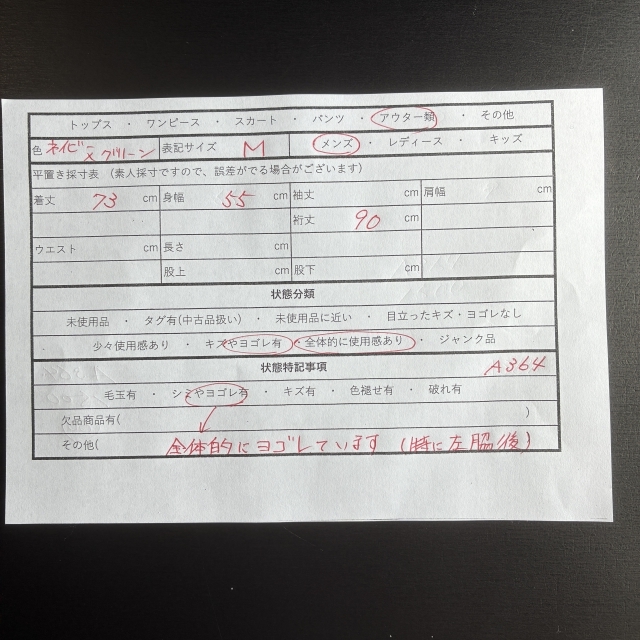 トップス ・ ワンピース ・ スカート ・ パンツ ・ アウター類 ・ その他
色 ネイビー×グリーン 表記サイズ M メンズ ・ レディース ・ キッズ
平置き採寸表 (素人採寸ですので、誤差がでる場合がございます)
着丈 73 cm 身幅 55 cm 袖丈 cm 肩幅 cm
裄丈 90 cm
ウエスト cm 長さ cm
股上 cm 股下 cm
状態分類
未使用品 ・ タグ有(中古品扱い) ・ 未使用品に近い ・ 目立ったキズ・ヨゴレなし
少々使用感あり ・ キズやヨゴレ有 ・ 全体的に使用感あり ・ ジャンク品
状態特記事項 A364
毛玉有 ・ シミやヨゴレ有 ・ キズ有 ・ 色褪せ有 ・ 破れ有
欠品商品有( )
その他( 全体的にヨゴレています (特に左脇/後) )